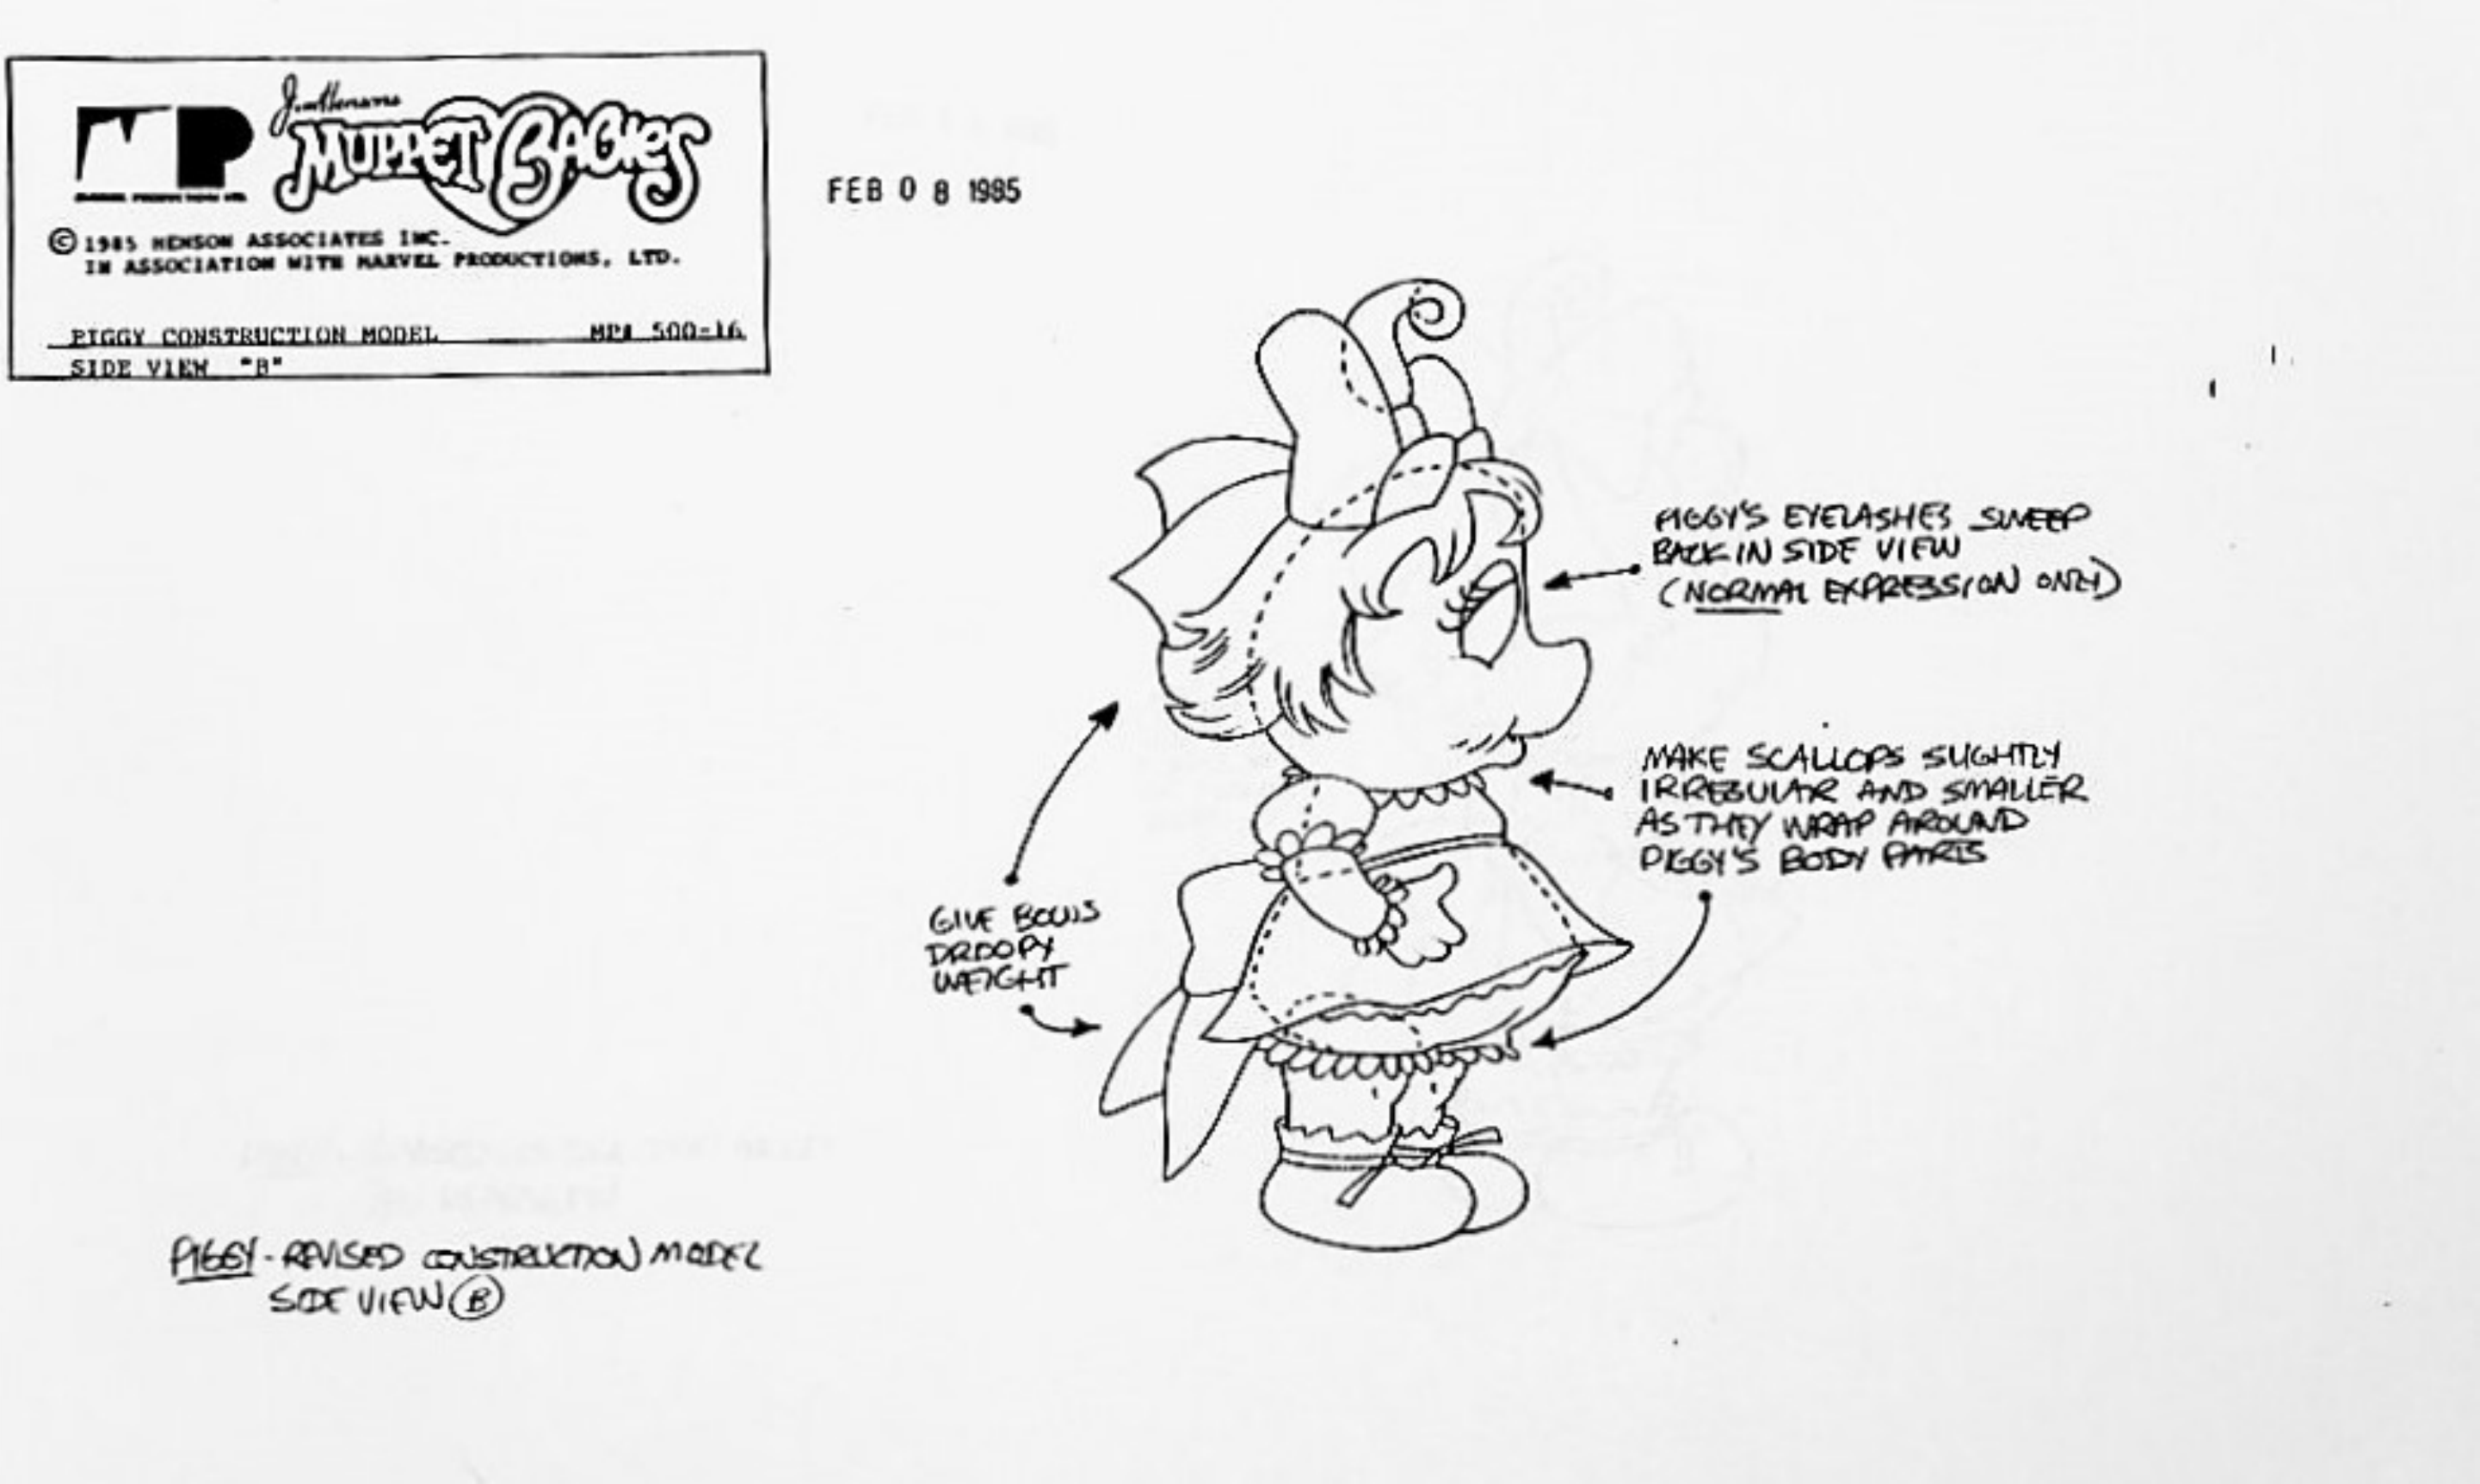 Jim Henson's
MUPPET BABIES
MP
MARVEL PRODUCTIONS LTD.
© 1985 HENSON ASSOCIATES INC.
IN ASSOCIATION WITH MARVEL PRODUCTIONS, LTD.
PIGGY CONSTRUCTION MODEL MP# 500-16
SIDE VIEW "B"
FEB 08 1985
PIGGY'S EYELASHES SWEEP
BACK IN SIDE VIEW
(NORMAL EXPRESSION ONLY)
MAKE SCALLOPS SLIGHTLY
IRREGULAR AND SMALLER
AS THEY WRAP AROUND
PIGGY'S BODY PARTS
GIVE BOWS
DROOPY
WEIGHT
PIGGY - REVISED CONSTRUCTION MODEL
SIDE VIEW B